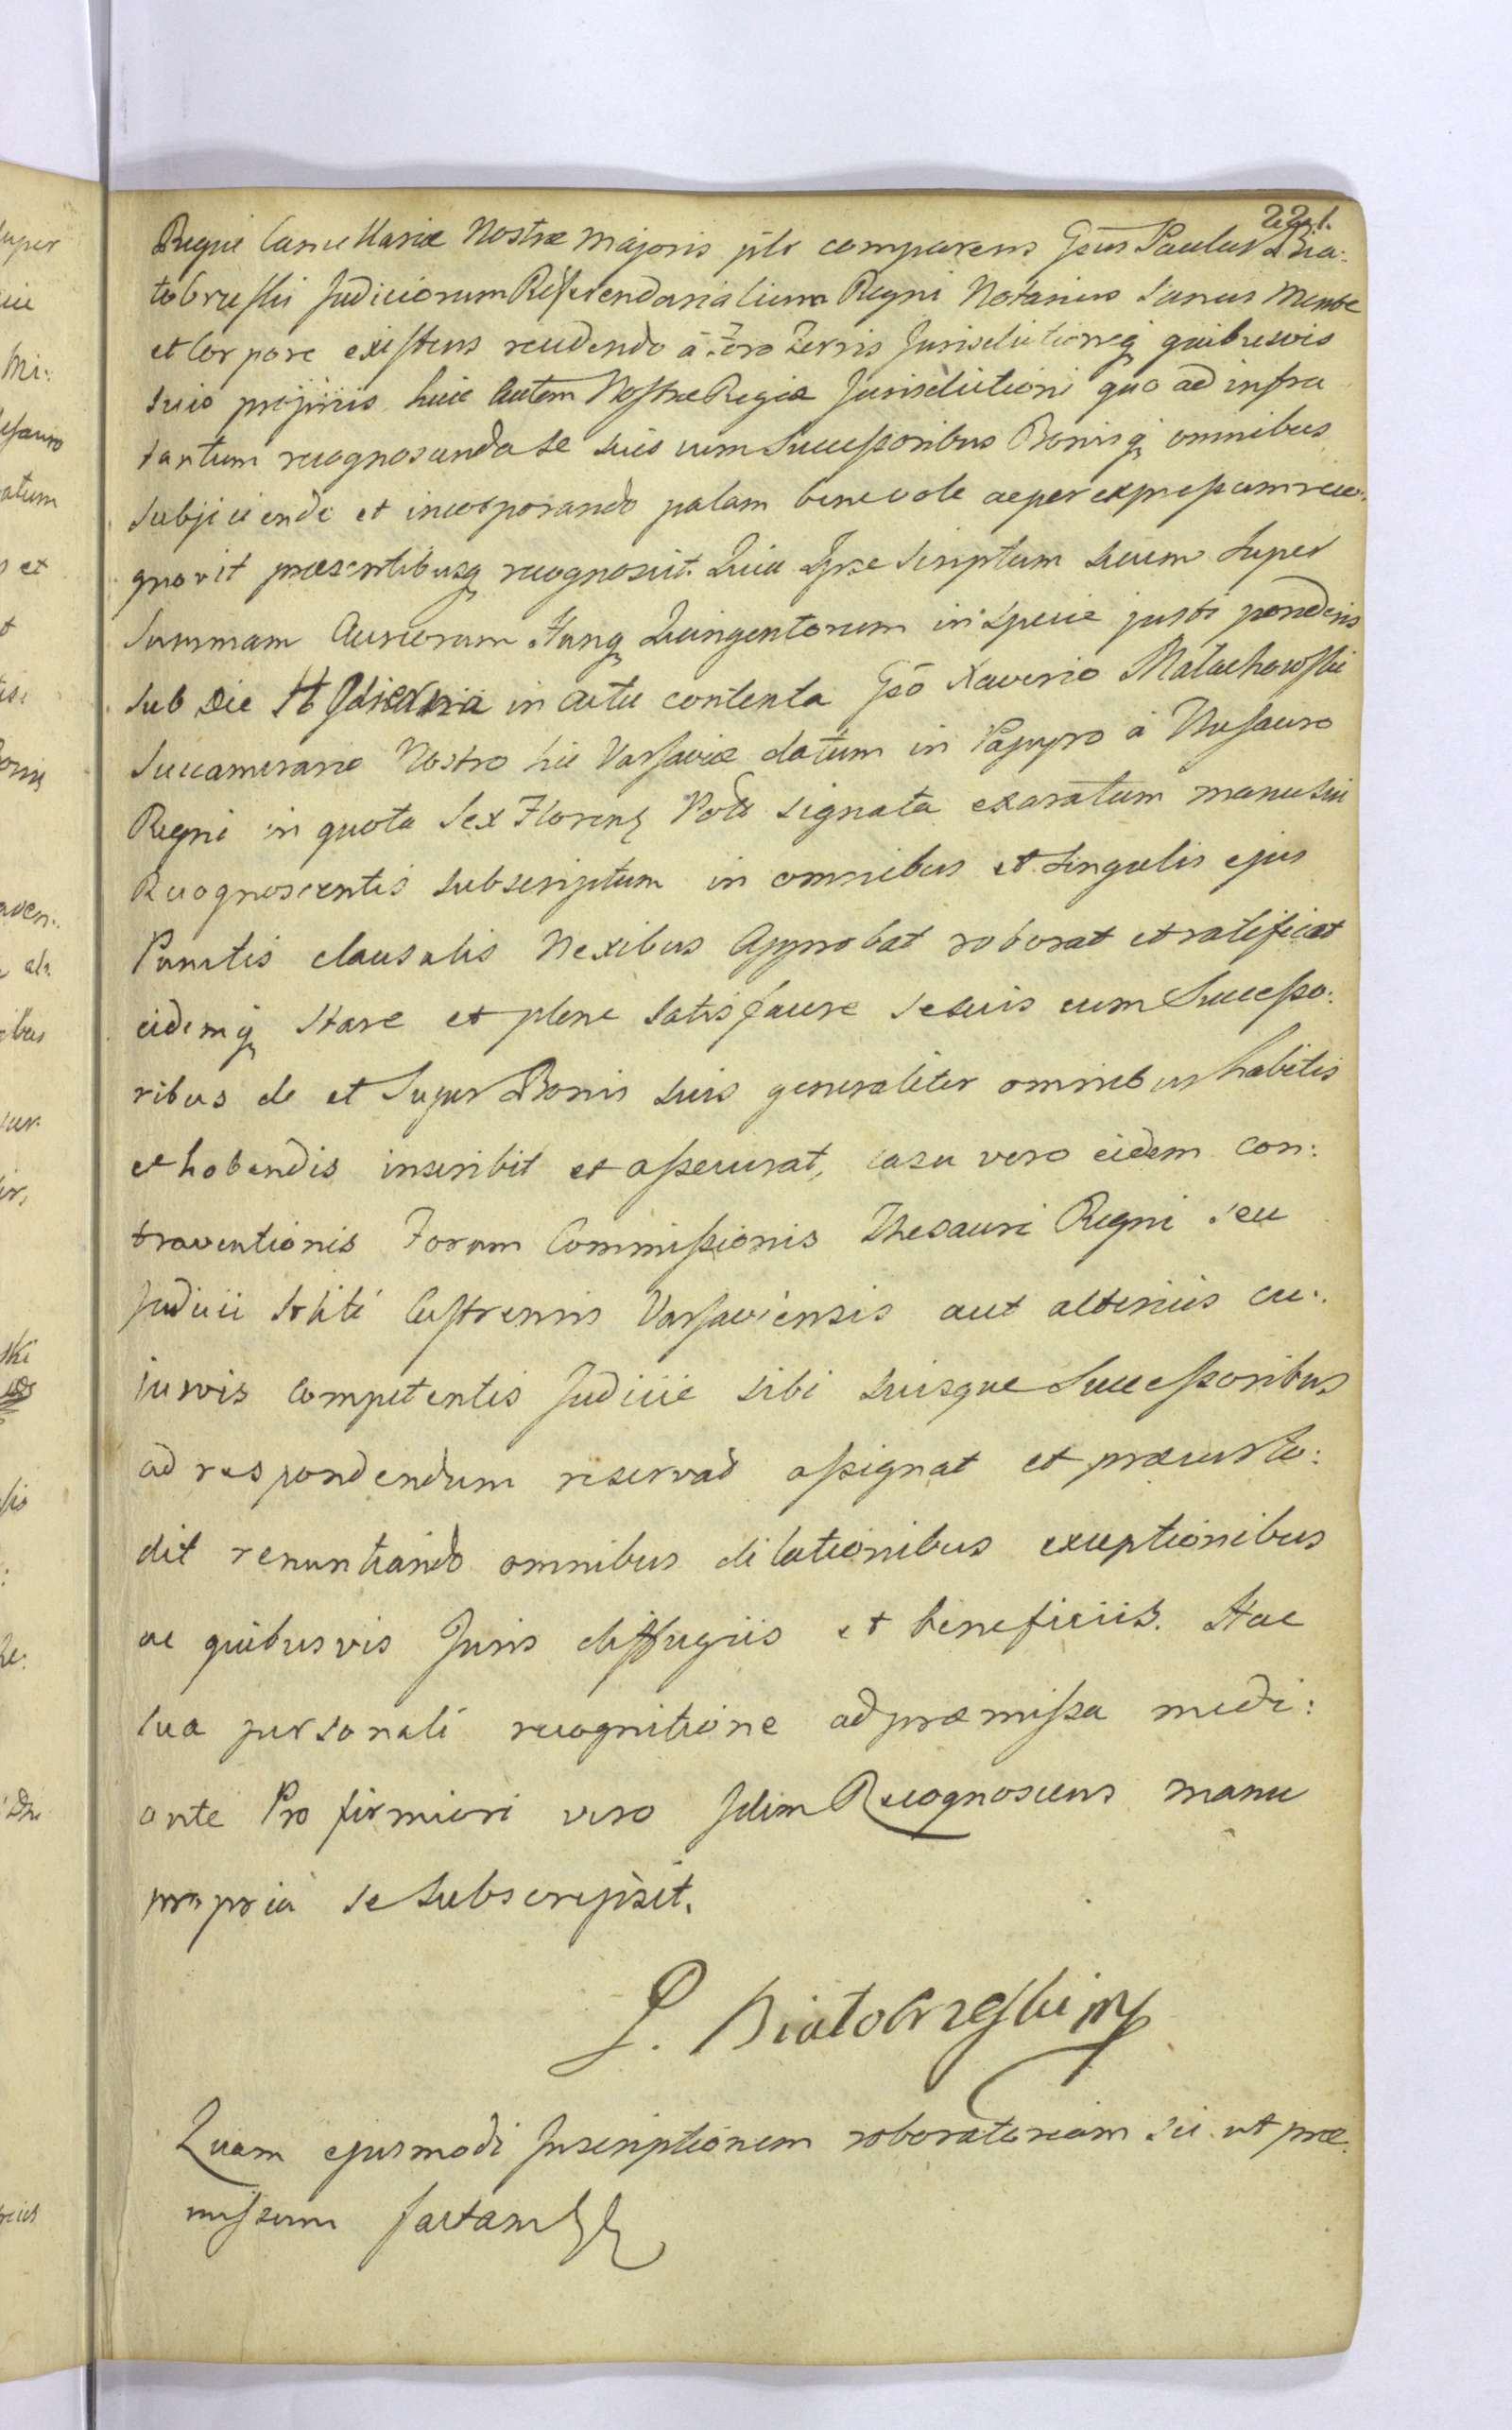 221.
Regni Cancellariæ Nostræ Majoris plr comparens Gsus Paulus Bia:
tobrzeski Judiciorum Referendarialium Regni Notarius Sanus Mente
et Corpore existens recedendo à Foro Terris Jurisdictioneq quibusvis
suis propriis huic autem Nostræ Regiæ Jurisdictioni quo ad infra
tantum recognoscenda se suis cum Successoribus Bonisq omnibus
subjiciendo et incorporando palam benevole ac per expressum reco:
gnovit præsentibusq recognoscit. Quia Ipse Scriptum suum super
Summam Aureorum Hung Quingentorum in specie justi ponderis
sub die Hodierna in actu contenta Gso Xaverio Małachowski
Succamerario Nostro hic Varsaviæ datum in Papyro à Thesauro
Regni in quota Sex Floren Pol signata exaratum manu sui
Recognoscentis subscriptum in omnibus et singulis ejus
Punctis clausulis Nexibus Approbat roborat et ratificat
eidemq stare et plene satisfacere se suis cum Successo:
ribus de et super Bonis suis generaliter omnibus habitis
et habendis inscribit et assecurat, casu vero eidem con:
traventionis Forum Commissionis Thesauri Regni seu
Judicii Castrensis Varsaviensis aut alterius cu:
iusvis Competentis Judicii sibi suisque Successoribus
ad respondendum reservat assignat et præcusto:
dit renuntiando omnibus dilationibus exceptionibus
ac quibusvis Juris diffugiis et beneficiis. Hac
sua personali recognitione ad præmissa medi:
ante Pro firmiori vero Idem Recognoscens manu
propria se subscripsit.
P. Białobrzeski mp
Quam ejusmodi Inscriptionem roboratoriam sic ut præ:
missum factam